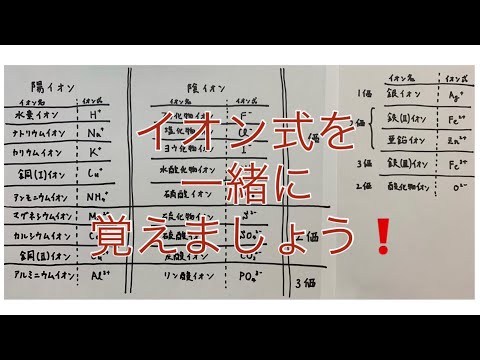 陽イオン
イオン名 イオン式
水素イオン H⁺
ナトリウムイオン Na⁺
カリウムイオン K⁺
銅(I)イオン Cu⁺
アンモニウムイオン NH₄⁺
マグネシウムイオン
カルシウムイオン
銅(II)イオン
アルミニウムイオン Al³⁺
陰イオン
イオン名 イオン式
化物イオン F⁻
塩化物イオン
ヨウ化物イオン
水酸化物イオン
硝酸イオン
硫化物イオン S²⁻
硫酸イオン SO₄²⁻
CO₃²⁻
リン酸イオン PO₄³⁻
2価
3価
イオン名 イオン式
1価 銀イオン Ag⁺
2価 鉄(II)イオン Fe²⁺
亜鉛イオン Zn²⁺
3価 鉄(III)イオン Fe³⁺
2価 酸化物イオン O²⁻
イオン式を
一緒に
覚えましょう❗